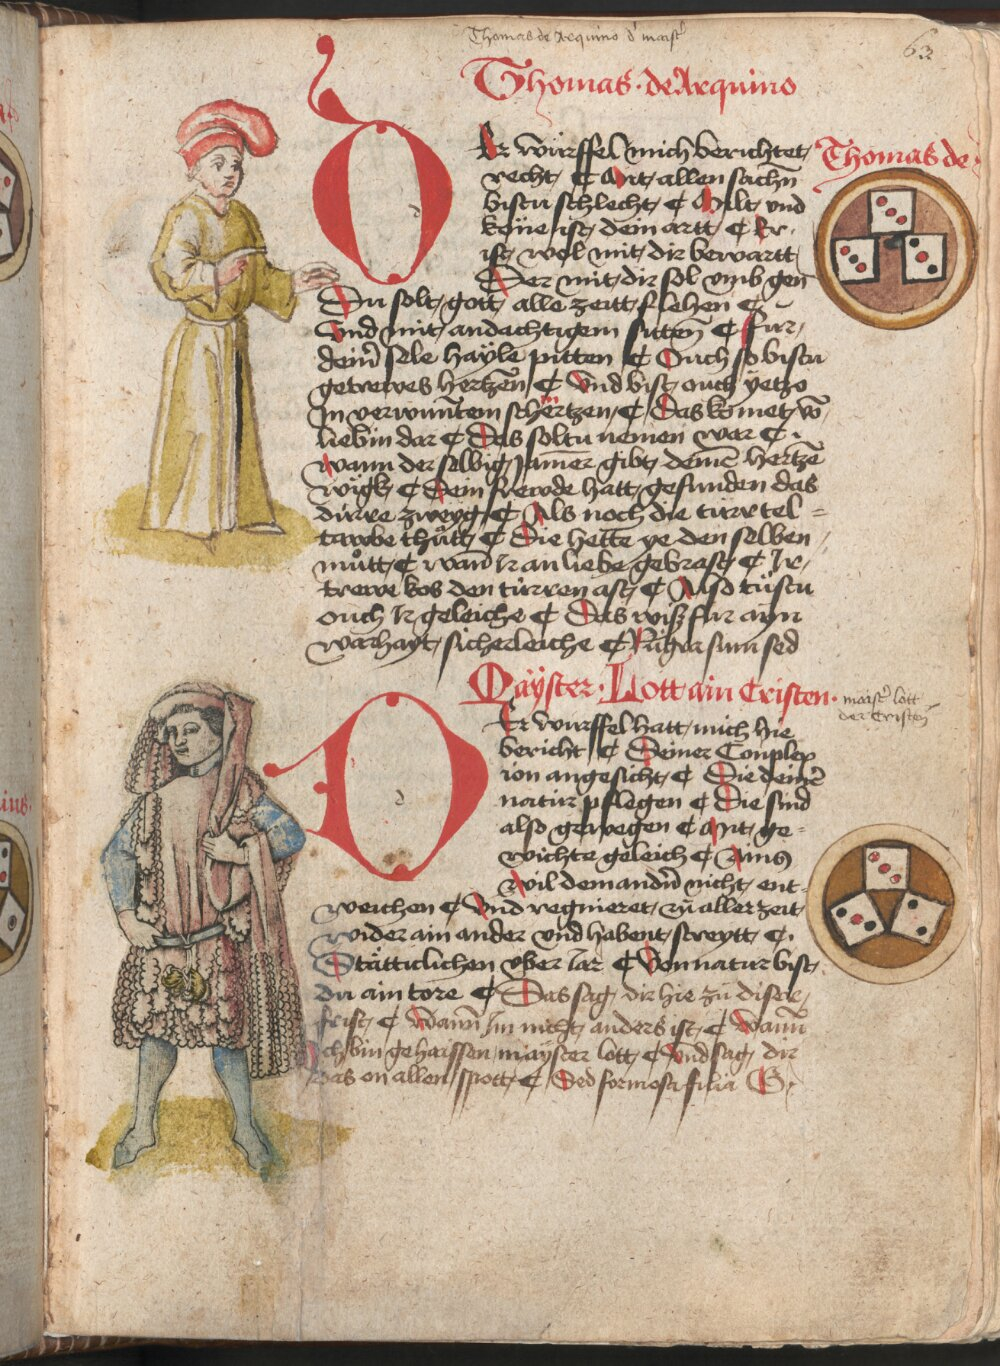 Thomas de Arquino d' maist'
63
Thomas · de Arquino
DEr würffel mich berichtet
recht ¢ Mit allen sachn
bistu schlecht ¢ Milt vnd
köne ist dein artt ¢ Er
ist wol mit dir bewartt
Der mit dir sol vmb gen
Thomas de
Du solt gott alle zeitt flehen ¢
Vnd mit andachtigem sitten ¢ Fur
dein sele hayle pitten ¢ Ouch so bistu
getrewes hertzen ¢ Vnd bist ouch yetzo
In verwuntem schertzen ¢ Das komet vō
liebin dar ¢ Das soltu nemen war ¢
wann der selbig Jamer gibt deinē hertzē
wigk ¢ Dein frewde hatt gefunden das
dürre zweyg ¢ Als noch die türrtel =
tawbe thůtt ¢ Die hette ye den selben
můtt ¢ wan Ir an liebe gebrast ¢ Ir
trewe kos den türren ast ¢ Also tůstu
ouch Ir geleiche ¢ Das wiß fur ayn
warhayt sicherleiche ¢ Nigra sum sed
Mayster · Lott ain Cristen ·
maist' lott
der Cristen
DEr wurffel hatt mich hie
bericht ¢ Deiner Conplex
ion angesicht ¢ Die deiner
natur pflegen ¢ Die sind
also gewegen ¢ Mit ge=
wichte geleich ¢ Ains
wil dem andn nicht ent
weichen ¢ Vnd regnieret zu aller zeit
wider ain ander vnd habent streytt ¢
Stätticlichen vber lar ¢ Von natur bist
du ain tore ¢ Das sag dir hie zu diser
frist ¢ Wann Im nicht anders ist ¢ Wann
Ich bin gehaissen mayster lott ¢ Vnd sag dir
das on allen spott ¢ Sed formosa filia